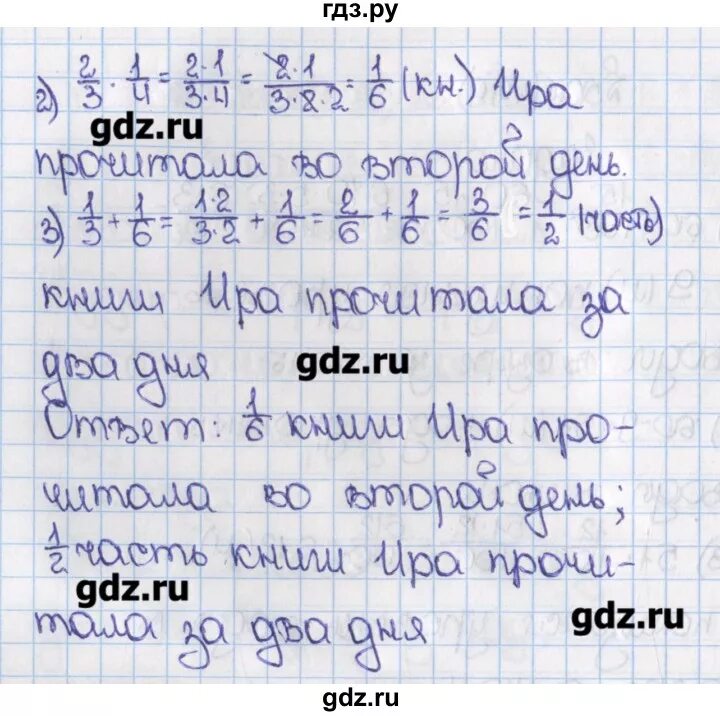 гдз.ру
2) 2/3 · 1/4 = 2·1/3·4 = 2·1/3·2·2 = 1/6 (кн.) Ира
gdz.ru
прочитала во второй день.
3) 1/3 + 1/6 = 1·2/3·2 + 1/6 = 2/6 + 1/6 = 3/6 = 1/2 (часть)
книги Ира прочитала за
два дня gdz.ru
Ответ: 1/6 книги Ира про-
читала во второй день;
1/2 часть книги Ира прочи-
gdz.ru
gdz.ru
тала за два дня
gdz.ru